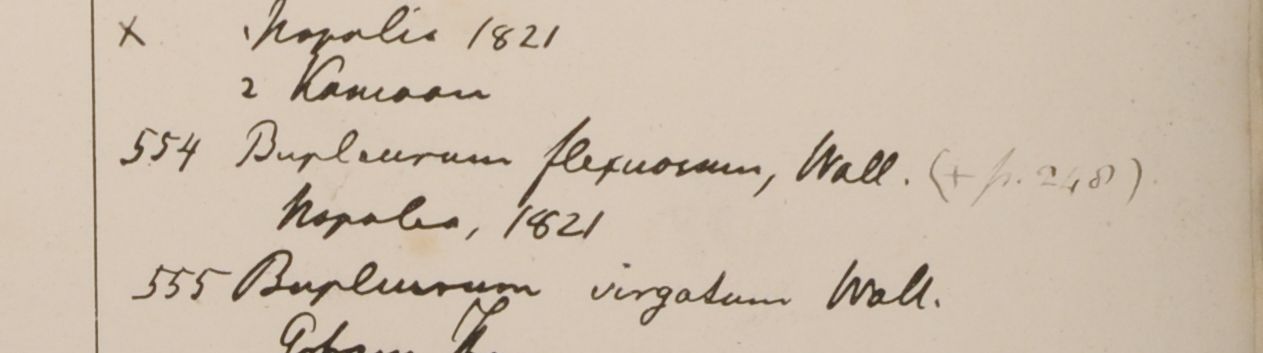 x 1 Napalia 1821
2 Kamoon
554 Bupleurum flexuosum, Wall. (+ p. 248)
Napalia, 1821
555 Bupleurum virgatum Wall.